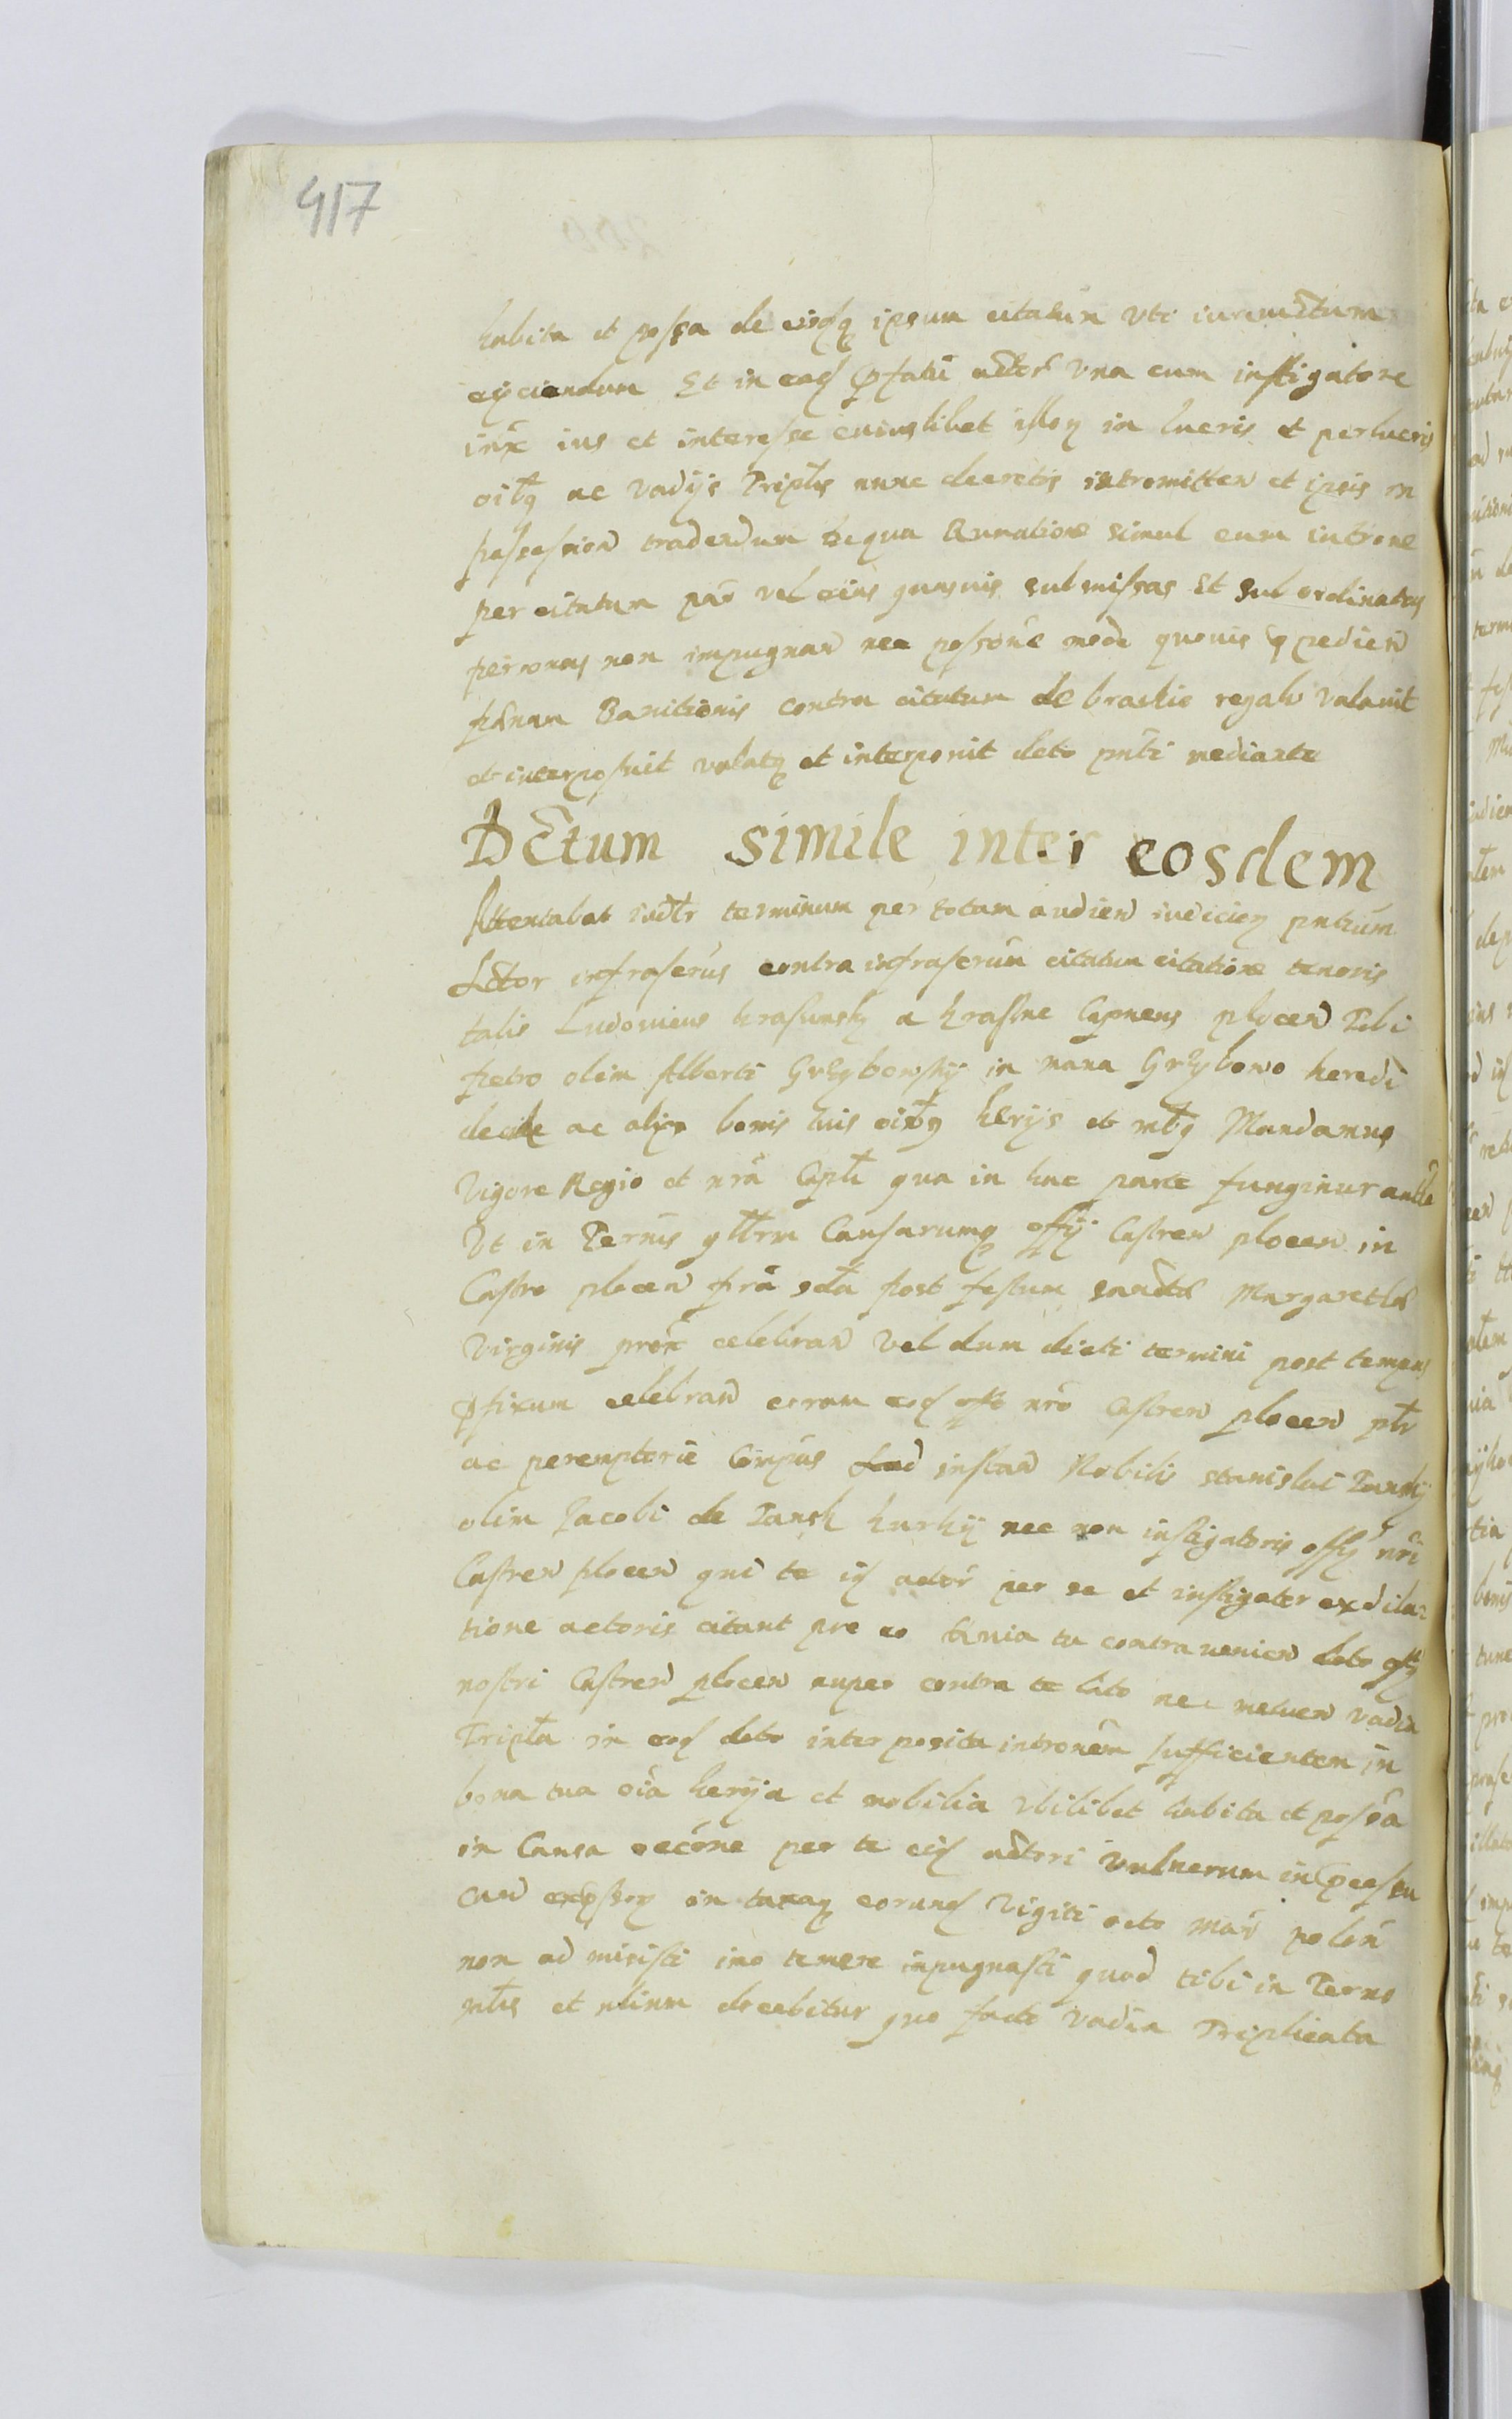 417
habita et possa de eisdq ipsum citatum uti iuramtum
eijciendum Et in eaq pfatu actor una cum instigatore
iux ius et interesse cuiuslibet illoq in lucris et perlucris
oibq ac vadijs Triplis nunc decretis intromitten et ipsis in
possession tradendum simul cum introne
per citatum par vel eius quasuis submissas Et sub ordinatas
personas non impugnan nec possone modo quouis pedien
penam Banitionis contra citatum de brachio regali valauit
et interposuit valatq et interponit deto pnti mediante
Dctum simile inter eosdem
Attentabat iudlr terminum per totam audien iudicioq pntium
Actor infrascrus contra infrascrum citatum citatione tenoris
talis Ludouicus krasinsky a krasne Capneus plocen Tibi
petro olim Alberti Grzybowskij in mana Grzybowo heredi
de ac alijs bonis tuis oibq herijs et mbq Mandamus
Vigore Regio et nra Capti qua in hac parte fungimur
Ut in Ternis Causarumq offij Castren plocen in
Castro plocen fra scda post festum sanctæ Margarethæ
Virginis prox celebran Vel dum dicti termini post tempus
pfixum celebran coram eoq offo nro Castren plocen ptr
ac peremptorie Compas ad instan Nobilis stanislai Tansky
olim Jacobi de Tansk kurkij nec non instigatoris offij nri
Castren plocen qui te iq actor per se et instigator ex dila=
tione actoris citant pro eo quia tu contra uenien deto offij
nostri Castren plocen nuper contra te lato nec metuen vadia
Tripla in eoq deto interposita intronem sufficientem in
bona tua oia herija et mobilia Ubilibet habita et possa
in Causa oecone per te eiq actori vulnerum in pcessu
can expssoq in taxaq eorunq Vigiti octo mar polon
non admisisti imo temere inpugnasti quod tibi in Terno
et alium docebitur quo facto vadia Triplicata